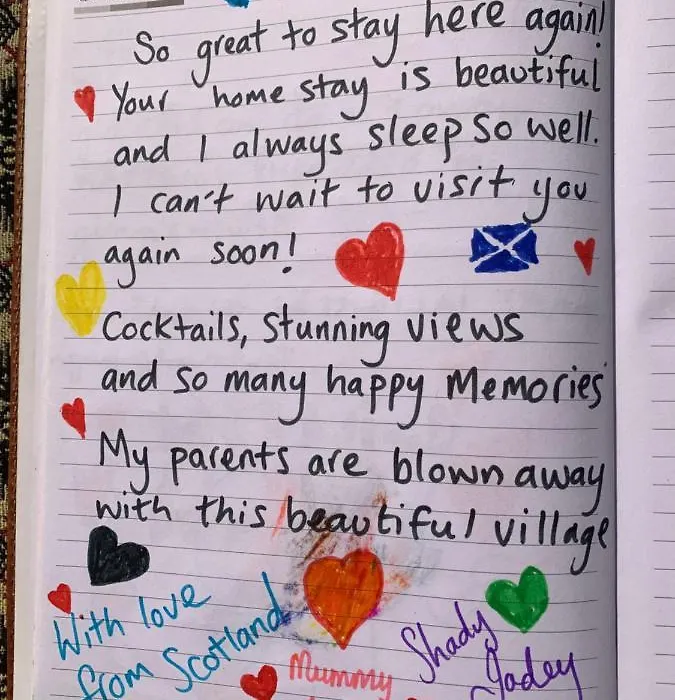 So great to stay here again!
Your home stay is beautiful
and I always sleep so well.
I can't wait to visit you
again soon!
Cocktails, Stunning views
and so many happy Memories
My parents are blown away
with this beautiful village
With love
from Scotland
Mummy
Shady
Jadey